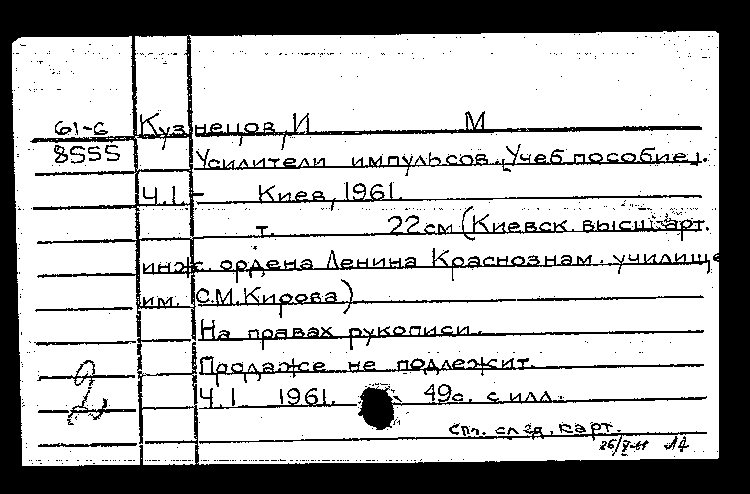 61-6 Кузнецов, И М
8555 Усилители импульсов. [Учеб пособие].
Ч.1.- Киев, 1961.
т. 22 см (Киевск. высш. арт.
инж. ордена Ленина Краснознам. училище
им. С.М.Кирова)
На правах рукописи.
Продаже не подлежит.
Ч.1 1961. 49с. с илл.
2
см. след. карт.